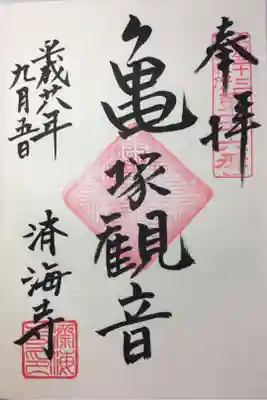 奉拝
亀塚観音
平成廿八年
九月五日
済海寺